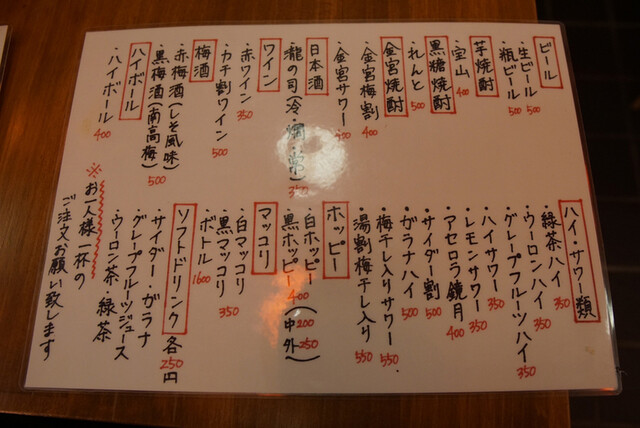 ビール
・生ビール 500
・瓶ビール 500
芋焼酎
・宝山 400
黒糖焼酎
・れんと 500
金宮焼酎
・金宮梅割 400
・金宮サワー 400
日本酒
・瀧の司(冷・燗・常) 350
ワイン
・赤ワイン 350
・カチ割ワイン 500
梅酒
・赤梅酒(しそ風味)
・黒梅酒(南高梅) 500
ハイボール
・ハイボール 400
ハイ・サワー類
・緑茶ハイ 350
・ウーロンハイ 350
・グレープフルーツハイ 350
・ハイサワー 350
・レモンサワー 350
・アセロラ鏡月 400
・サイダー割 500
・ガラナハイ 500
・梅干し入りサワー 550
・湯割梅干し入り 550
ホッピー
・白ホッピー
・黒ホッピー 400 (中200 外250)
マッコリ
・白マッコリ
・黒マッコリ 350
ボトル 1600
ソフトドリンク 各250円
・サイダー・ガラナ
・グレープフルーツジュース
・ウーロン茶・緑茶
※お一人様一杯の
ご注文お願い致します